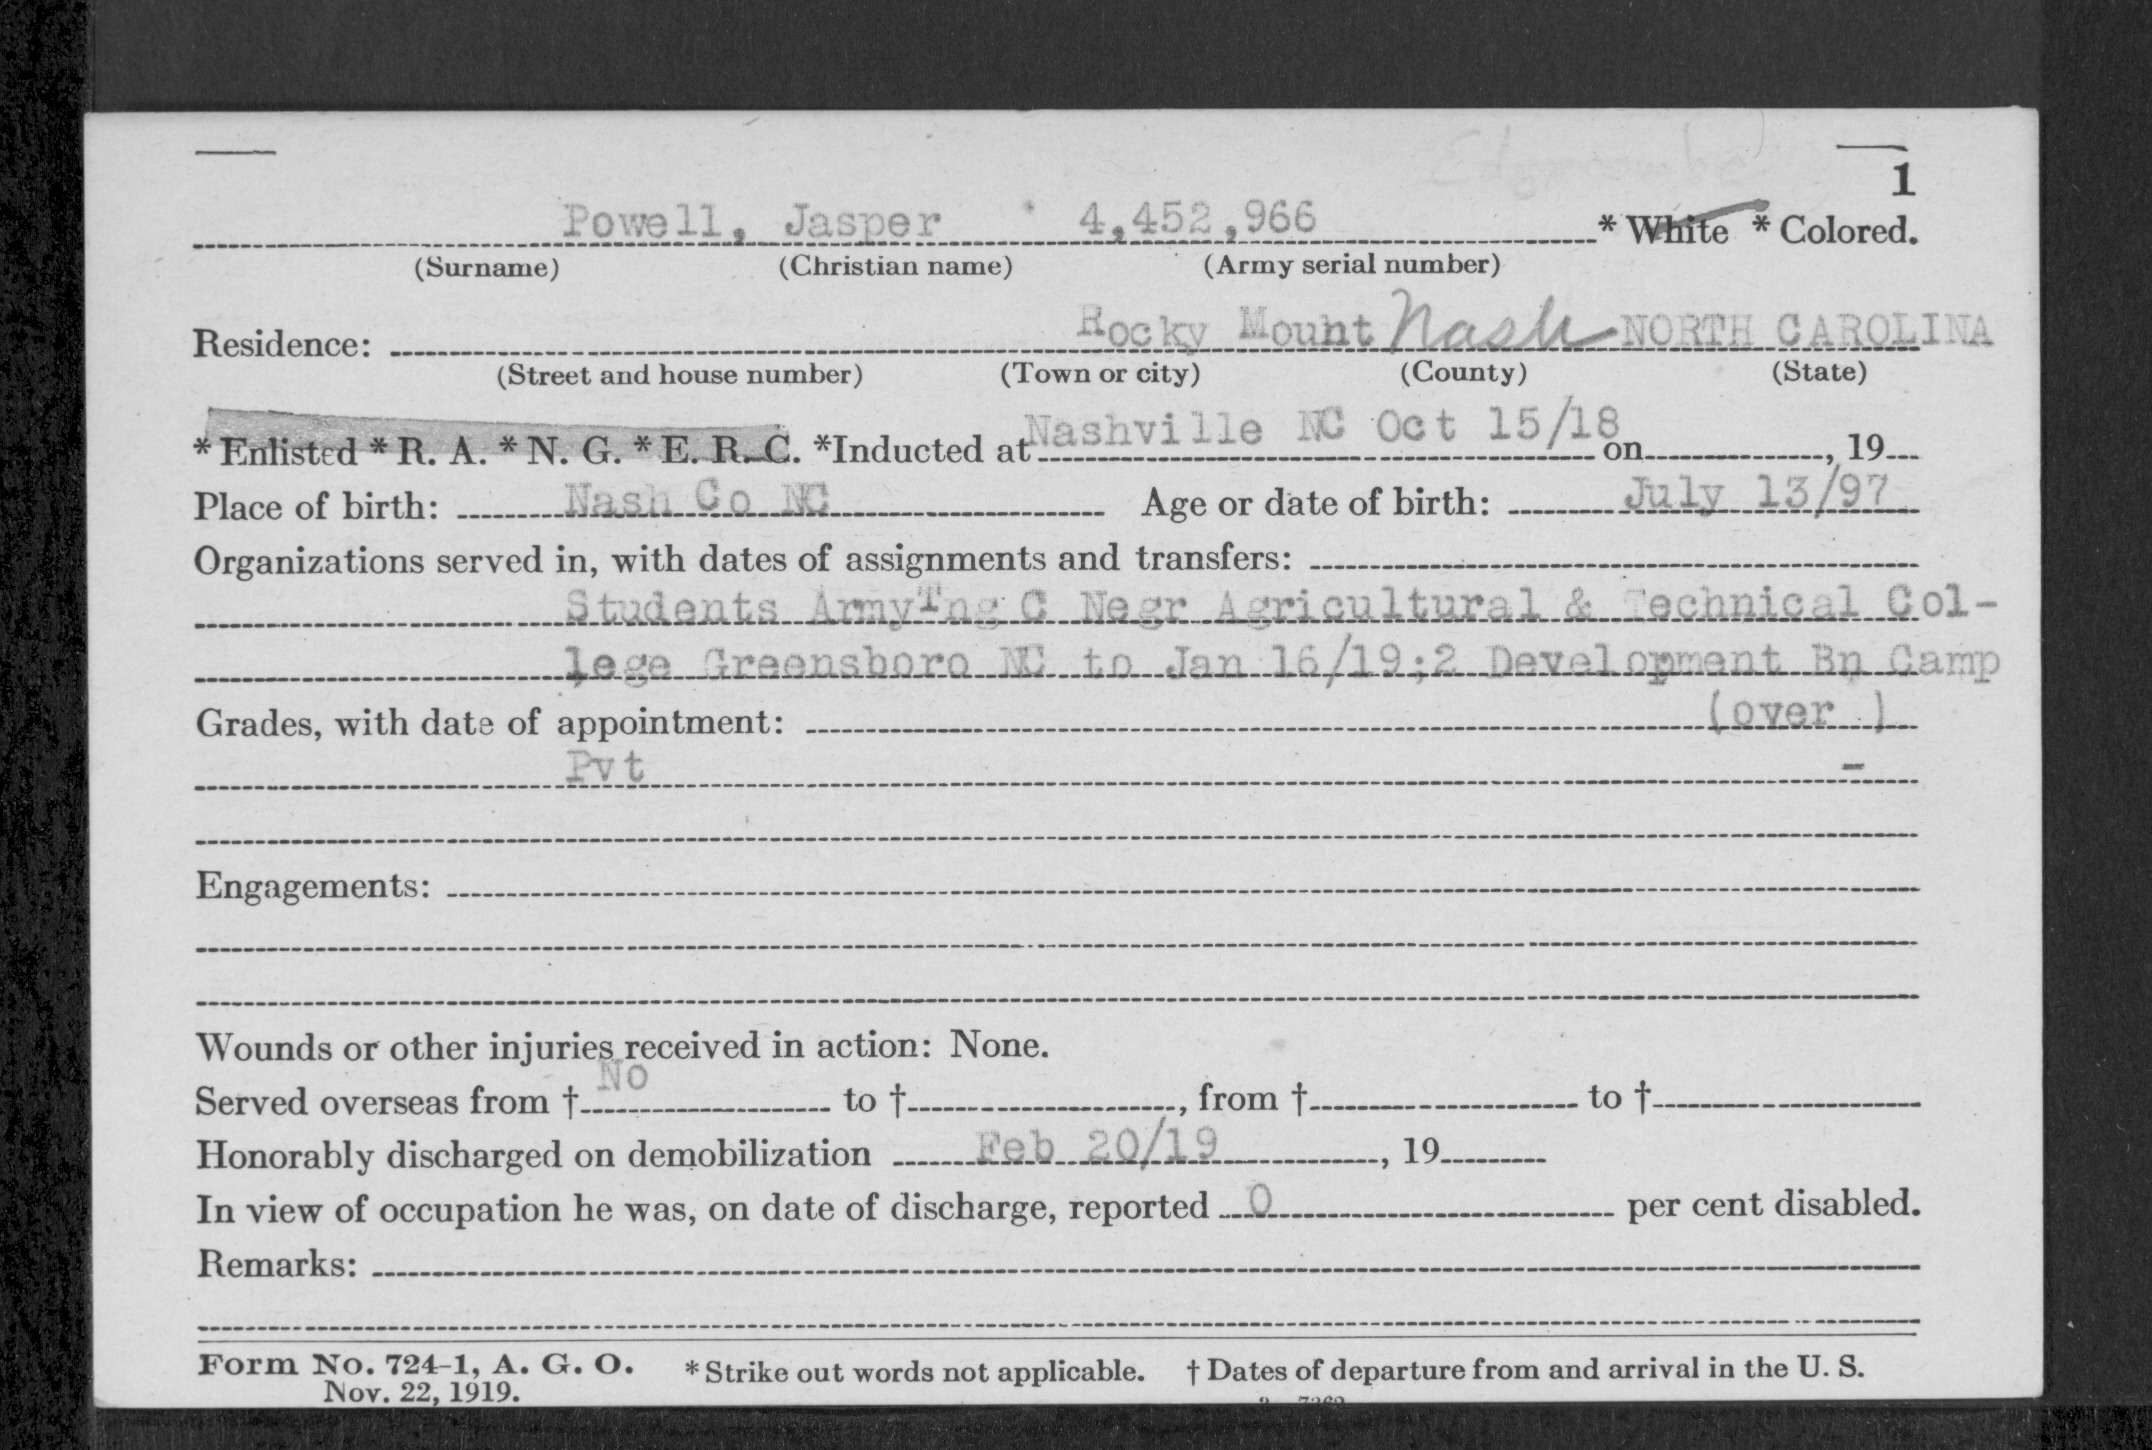 Edgecombe
1
Powell, Jasper 4,452,966 * White * Colored.
(Surname) (Christian name) (Army serial number)
Residence: Rocky Mount Nash NORTH CAROLINA
(Street and house number) (Town or city) (County) (State)
* Enlisted * R. A. * N. G. * E. R. C. *Inducted at Nashville NC Oct 15/18 on , 19
Place of birth: Nash Co NC Age or date of birth: July 13/97
Organizations served in, with dates of assignments and transfers:
Students ArmyTng C Negr Agricultural & Technical Col-
lege Greensboro NC to Jan 16/19;2 Development Bn Camp
Grades, with date of appointment: (over )
Pvt -
Engagements:
Wounds or other injuries received in action: None.
Served overseas from † No to † , from † to †
Honorably discharged on demobilization Feb 20/19 , 19
In view of occupation he was, on date of discharge, reported 0 per cent disabled.
Remarks:
Form No. 724-1, A. G. O. * Strike out words not applicable. † Dates of departure from and arrival in the U. S.
Nov. 22, 1919.